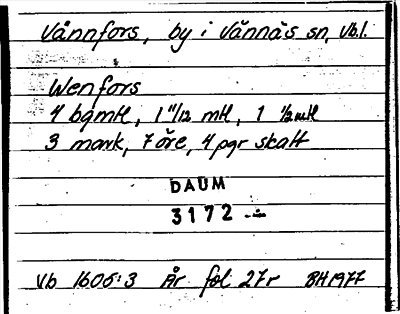 Vännfors, by i Vännäs sn, Vb.l.
Wenfors
4 bgmtl, 1 11/12 mtl, 1 1/2 mtl
3 mark, 7 öre, 4 pgr skatt
DAUM
3172
Vb 1605:3 Är fol 27r BH1977